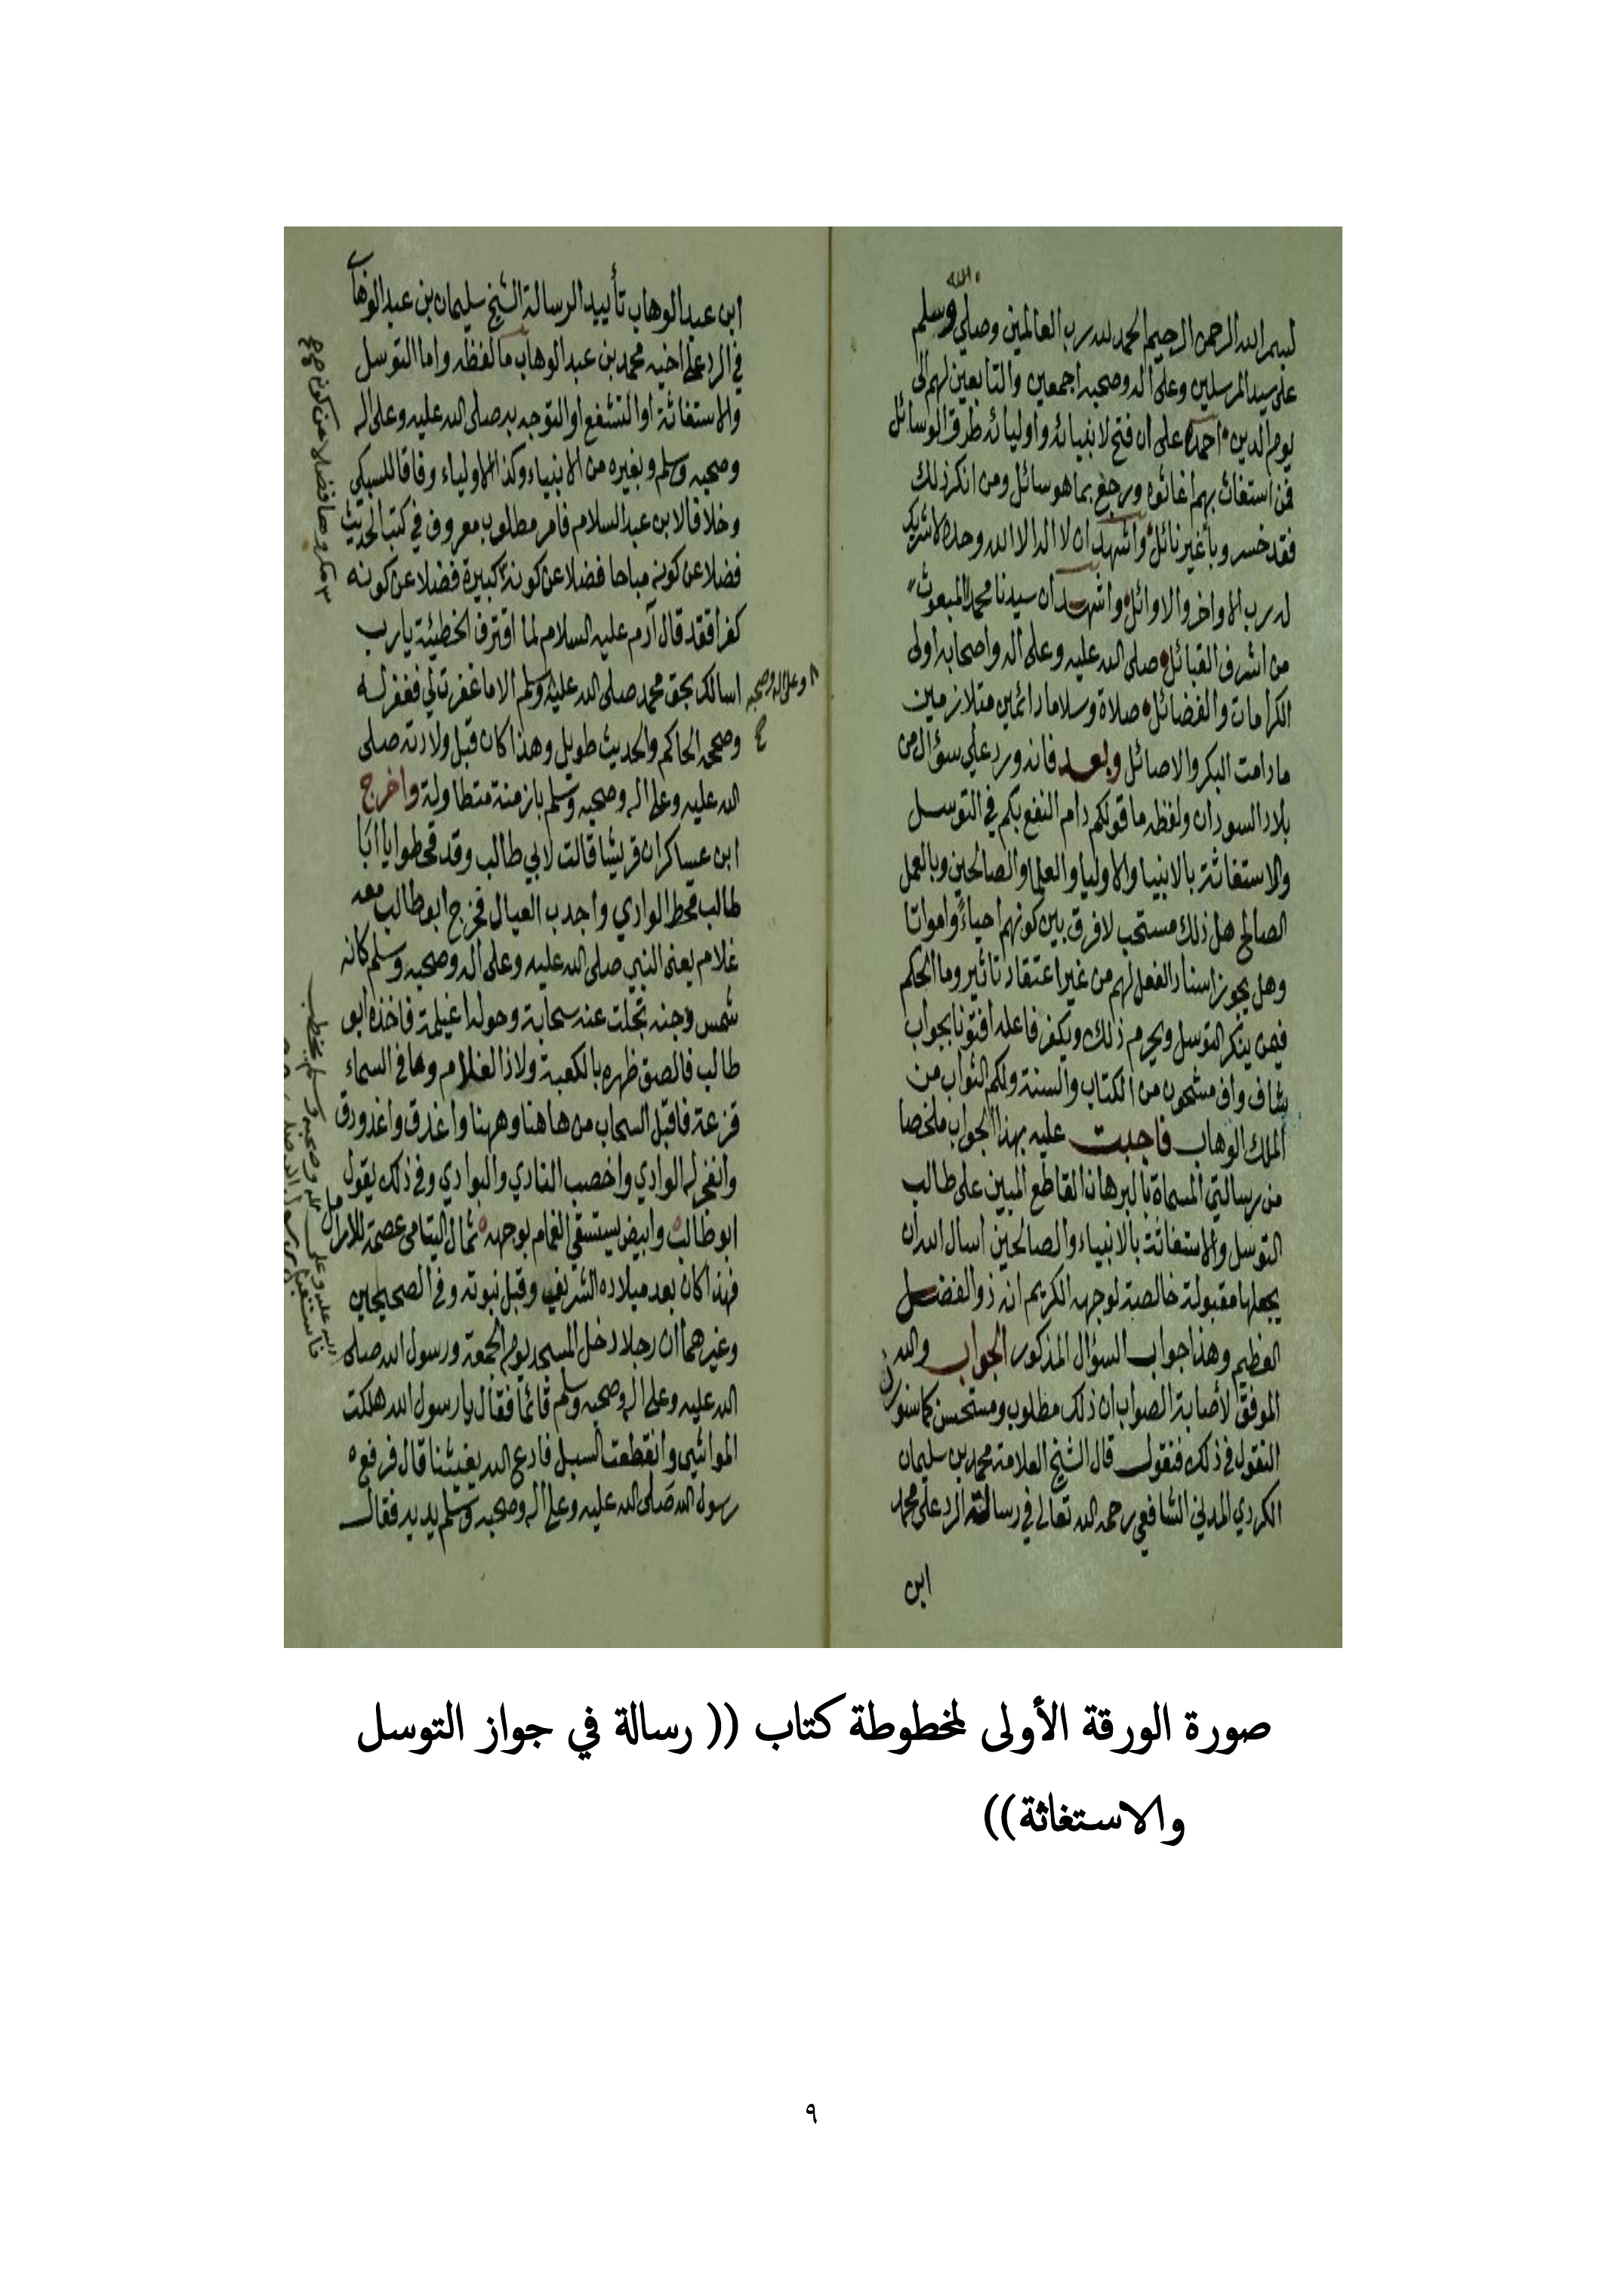 الله
لبسم الله الرحمن الرحيم الحمد لله رب العالمين وصلى وسلم
على سيد المرسلين وعلى اله وصحبه اجمعين والتابعين لهم الى
يوم الدين احمده على ان فتح لانبيائه واوليائه طرق الوسائل
فمن استغاث بهم اغاثوه ورجع بما هو سائل ومن انكر ذلك
فقد خسر وباء غير نائل واشهد ان لا اله الا الله وحده لا شريك
له رب الاواخر والاوائل واشهد ان سيدنا محمد المبعوث
من اشرف القبائل صلى الله عليه وعلى اله واصحابه اولى
الكرامات والفضائل صلاة وسلاما دائمين متلازمين
مادامت البكر والاصائل وبعد فانه ورد علي سؤال من
بلاد السودان ولفظه ما قولكم دام النفع بكم في التوسل
والاستغاثة بالانبيا والاوليا والعلما والصالحين وبالعمل
الصالح هل ذلك مستحب لا فرق بين كونهم احياء وامواتا
وهل يجوز اسناد الفعل لهم من غير اعتقاد تاثير وما الحكم
فيمن ينكر التوسل ويحرم ذلك ويكفر فاعله افتونا بجواب
شاف واف مشحون من الكتاب والسنة ولكم الثواب من
الملك الوهاب فاجبت عليه بهذا الجواب ملخصا
من رسالتي المسماة بالبرهان القاطع المبين على طالب
التوسل والاستغاثة بالانبياء والصالحين اسال الله ان
يجعلها مقبولة خالصة لوجهه الكريم انه ذو الفضل
العظيم وهذا جواب السؤال المذكور الجواب والله
الموفق لاصابة الصواب ان ذلك مطلوب ومستحسن كما سنورد
النقول في ذلك فنقول قال الشيخ العلامة محمد بن سليمان
الكردي المدني الشافعي رحمه الله تعالى في رسالته الرد على محمد
ابن
ابن عبد الوهاب تأييد الرسالة الشيخ سليمان بن عبد الوهاب
في الرد على اخيه محمد بن عبد الوهاب ما لفظه واما التوسل
والاستغاثة او التشفع او التوجه به صلى الله عليه وعلى اله
وصحبه وسلم وبغيره من الانبياء وكذا الاولياء وفاقا للسبكي
وخلافا لابن عبد السلام فامر مطلوب معروف في كتب الحديث
فضلا عن كونه مباحا فضلا عن كونه كبيرة فضلا عن كونه
كفرا فقد قال آدم عليه السلام لما اقترف الخطيئة يارب
اسالك بحق محمد صلى الله عليه وسلم الا ما غفرت لي فغفر له
وصححه الحاكم والحديث طويل وهذا كان قبل ولادته صلى
الله عليه وعلى اله وصحبه وسلم بازمنة متطاولة واخرج
ابن عساكر ان قريشا قالت لابي طالب وقد قحطوا يا ابا
طالب قحط الوادي واجدب العيال فخرج ابو طالب معه
غلام يعنى النبي صلى الله عليه وعلى اله وصحبه وسلم كانه
شمس دجنه تجلت عنه سحابة وحوله اغيلمة فاخذه ابو
طالب فالصق ظهره بالكعبة ولاذ الغلام وما في السماء
قزعة فاقبل السحاب من هاهنا وههنا واغدق واغدودق
وانفجر له الوادي واخصب النادي والبوادي وفي ذلك يقول
ابو طالب وابيض يستسقى الغمام بوجهه ثمال اليتامى عصمة للارامل
فهذا كان بعد ميلاده الشريف وقبل نبوته وفي الصحيحين
وغيرهما ان رجلا دخل المسجد يوم الجمعة ورسول الله صلى
الله عليه وعلى اله وصحبه وسلم قائما فقال يا رسول الله هلكت
المواشي وانقطعت السبل فادع الله يغيثنا قال فرفع
رسول الله صلى الله عليه وعلى اله وصحبه وسلم يديه فقال
وعلى اله وصحبه
صورة الورقة الأولى لمخطوطة كتاب (( رسالة في جواز التوسل
والاستغاثة))
٩